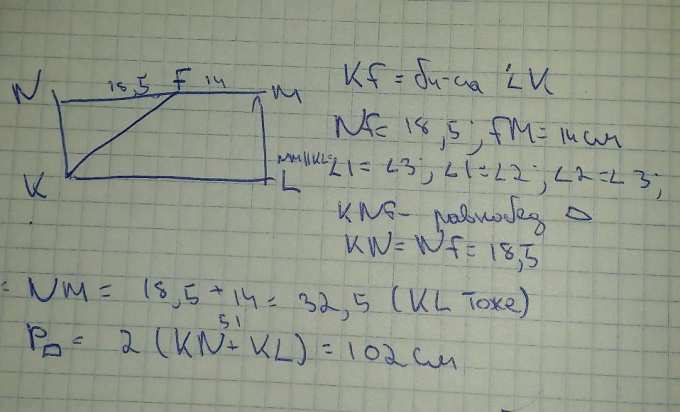 N 18,5 F 14 M
K L
KF = би-са ∠K
NF = 18,5; FM = 14 см
NM||KL= ∠1 = ∠3; ∠1 = ∠2; ∠2 = ∠3;
KNF - равнобед
KN = NF = 18,5
= NM = 18,5 + 14 = 32,5 (KL тоже)
51
P▱ = 2 (KN + KL) = 102 см